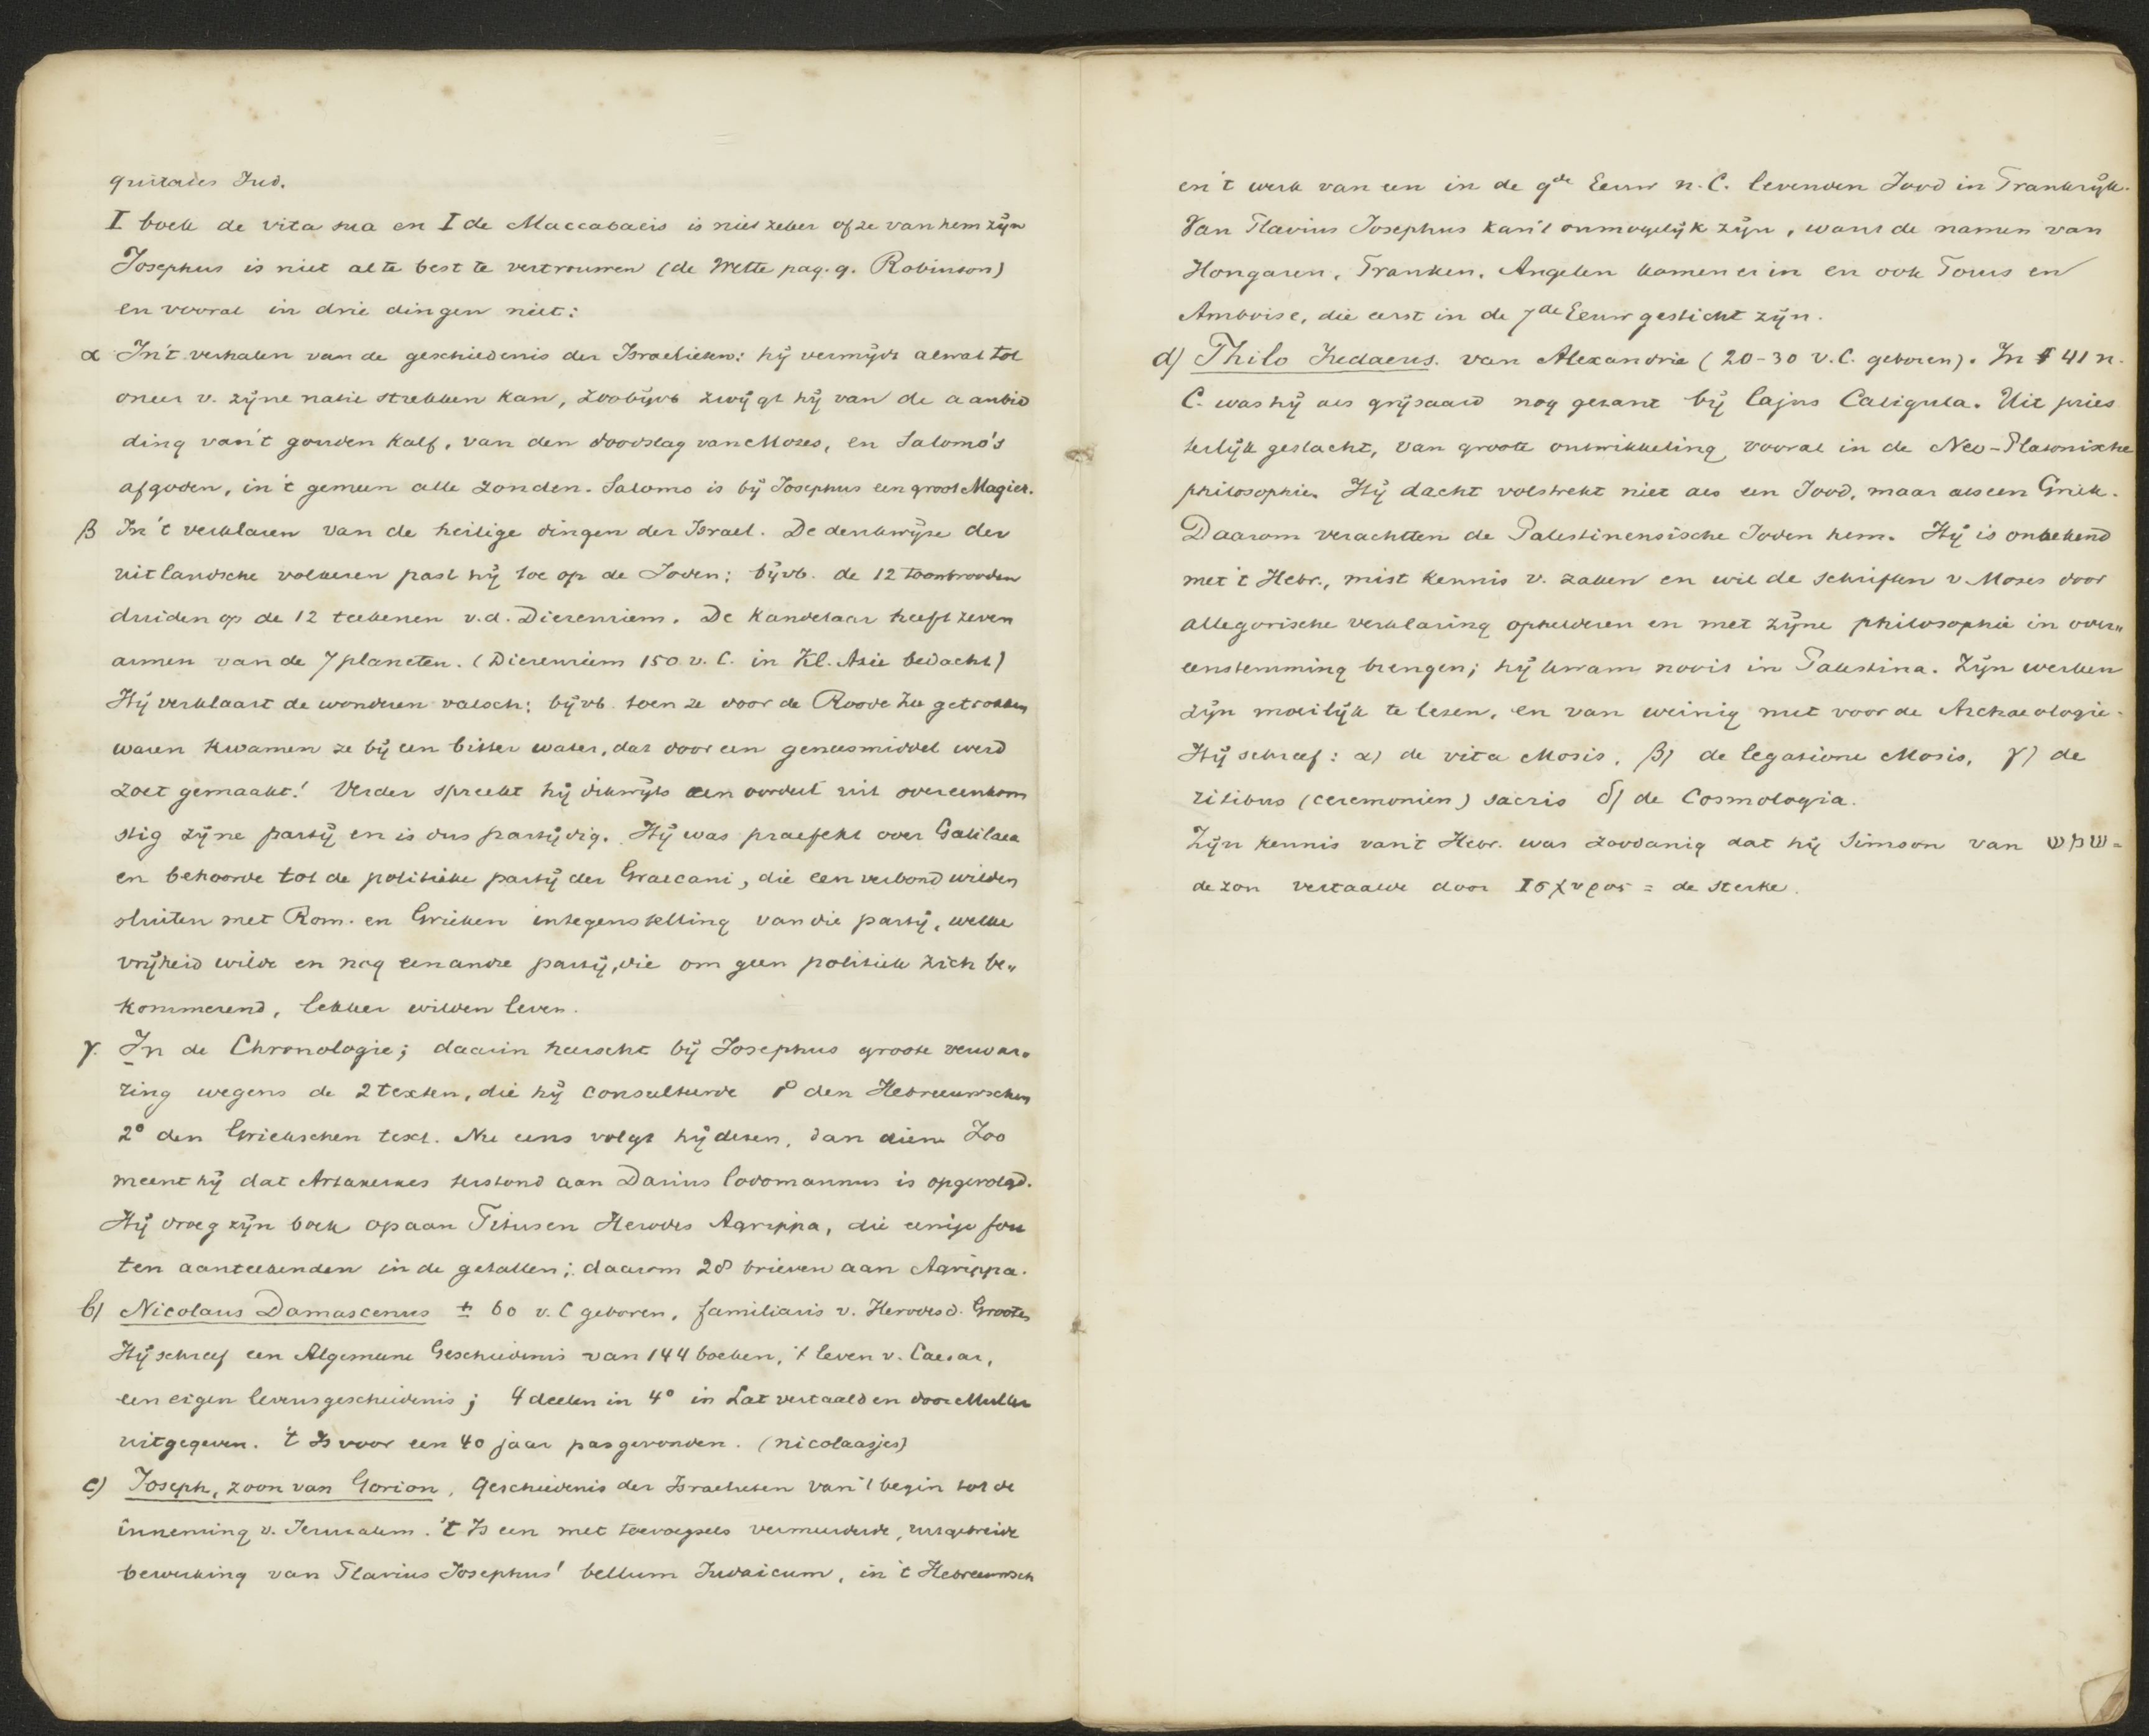 quitates Jud.
I boek de vita sua en I de Maccabaeis is niet zeker of ze van hem zijn
Josephus is niet al te best te vertrouwen (de Wette pag. 9. Robinson)
en vooral in drie dingen niet:
α In't verhalen van de geschiedenis der Israelieten: hij vermijdt alwat tot
oneer v. zijne natie strekken kan, zoobijvb zwijgt hij van de aanbid
ding van't gouden Kalf, van den doodslag van Mozes, en Salomo's
afgoden, in 't gemeen alle zonden. Salomo is bij Josephus een groot Magier.
β In 't verklaren van de heilige dingen der Israel. De denkwijze der
uitlandsche volkeren past hij toe op de Joden; bijvb. de 12 toonbrooden
duiden op de 12 teekenen v.d. Dierenriem. De Kandelaar heeft zeven
armen van de 7 planeten. (Dierenriem 150 v. C. in Kl. Azië bedacht)
Hij verklaart de wonderen valsch: bijvb. toen ze door de Roode Zee getrokken
waren kwamen ze bij een bitter water, dat door een geneesmiddel werd
zoet gemaakt! Verder spreekt hij dikwijls een oordeel uit overeenkom
stig zijne partij en is dus partijdig. Hij was praefekt over Galilaea
en behoorde tot de politieke partij der Graecani, die een verbond wilden
sluiten met Rom. en Grieken in tegenstelling van die partij, welke
vrijheid wilde en nog een andre partij, die om geen politiek zich be„
kommerend, lekker wilden leven.
γ. In de Chronologie; daarin heerscht bij Josephus groote verwar„
ring wegens de 2 texten, die hij consulteerde 1° den Hebreeuwschen
2° den Griekschen text. Nu eens volgt hij dezen, dan dien. Zoo
meent hij dat Artaxerxes terstond aan Darius Codomannus is opgevolgd.
Hij droeg zijn boek op aan Titus en Herodes Agrippa, die eenige fou
ten aanteekenden in de getallen; daarom 28 brieven aan Agrippa.
b) Nicolaus Damascenus ± 60 v. C geboren, familiaris v. Herodes d. Groote
Hij schreef een Algemeene Geschiedenis van 144 boeken, 't leven v. Caesar,
een eigen levensgeschiedenis; 4 deelen in 4° in Lat vertaald en door Muller
uitgegeven. 't Is voor een 40 jaar pas gevonden. (nicolaasjes)
c) Joseph, zoon van Gorion, Geschiedenis der Israelieten van 't begin tot de
inneming v. Jeruzalem. 't Is een met toevoegsels vermeerderde, uitgebreide
bewerking van Flavius Josephus' bellum Judaicum, in 't Hebreeuwsch
en 't werk van een in de 9de Eeuw n. C. levenden Jood in Frankrijk.
Van Flavius Josephus kan't onmogelijk zijn, want de namen van
Hongaren, Franken, Angelen komen er in en ook Tours en
Amboise, die eerst in de 7de Eeuw gesticht zijn.
d) Philo Judaeus. van Alexandrie (20-30 v.C. geboren). In 41 n.
C. was hij als grijsaard nog gezant bij Cajus Caligula. Uit pries
terlijk geslacht, van groote ontwikkeling, vooral in de Neo-Platonische
philosophie. Hij dacht volstrekt niet als een Jood, maar als een Griek.
Daarom verachtten de Palestinensische Joden hem. Hij is onbekend
met 't Hebr., mist kennis v. zaken en wil de schriften v Moses door
allegorische verklaring ophelderen en met zijne philosophie in over„
eenstemming brengen; hij kwam nooit in Palestina. Zijn werken
zijn moeilijk te lezen, en van weinig nut voor de Archaeologie.
Hij schreef: α) de vita Mosis, β) de legatione Mosis, γ) de
ritibus (ceremonien) sacris δ) de Cosmologia.
Zijn kennis van't Hebr. was zoodanig dat hij Simson van שמש =
de zon vertaalde door Ισχυρος = de sterke.